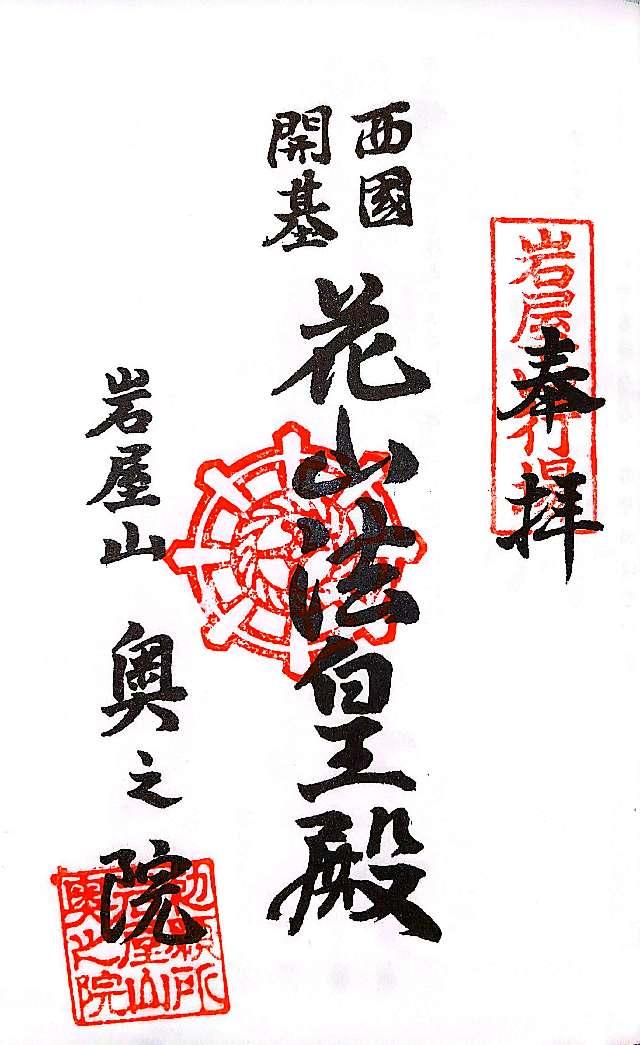 奉拝
岩屋山行場
西國
開基
花山法皇殿
岩屋山 奥之院
勅願所
岩屋山
奥之院